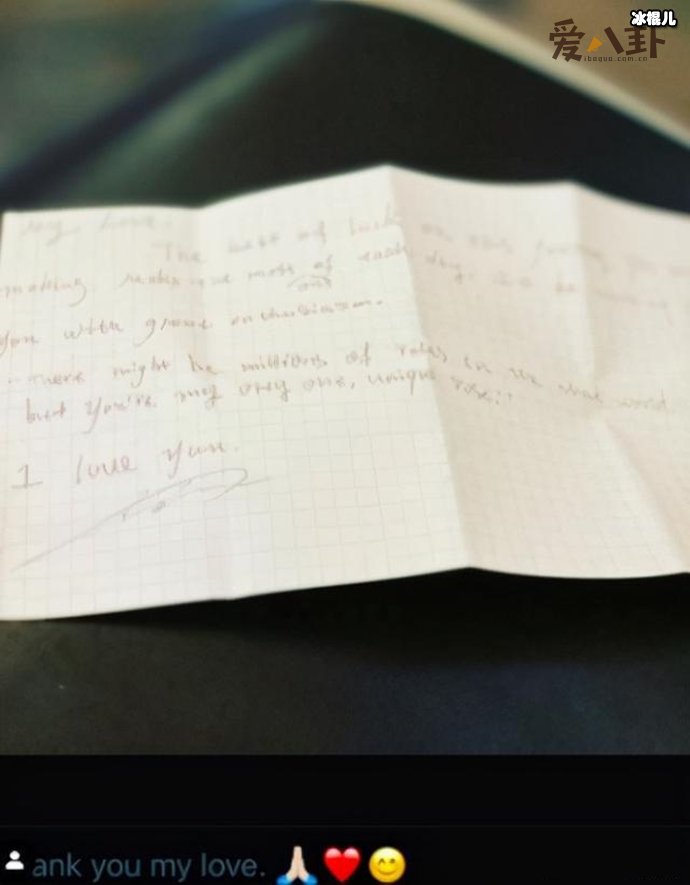 冰棍儿
爱八卦
ibagua.com.cn
my love:
The best of
making most of each day,
one
you with great enthusiasm.
There might be millions of roses in
but you're my only one, unique rose!!
I love you.
ank you my love. 🙏🏻❤️😊